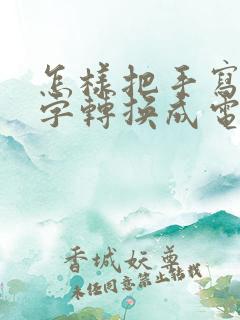 怎樣把手寫
字轉換成電
香城妖尊
未經同意禁止轉載